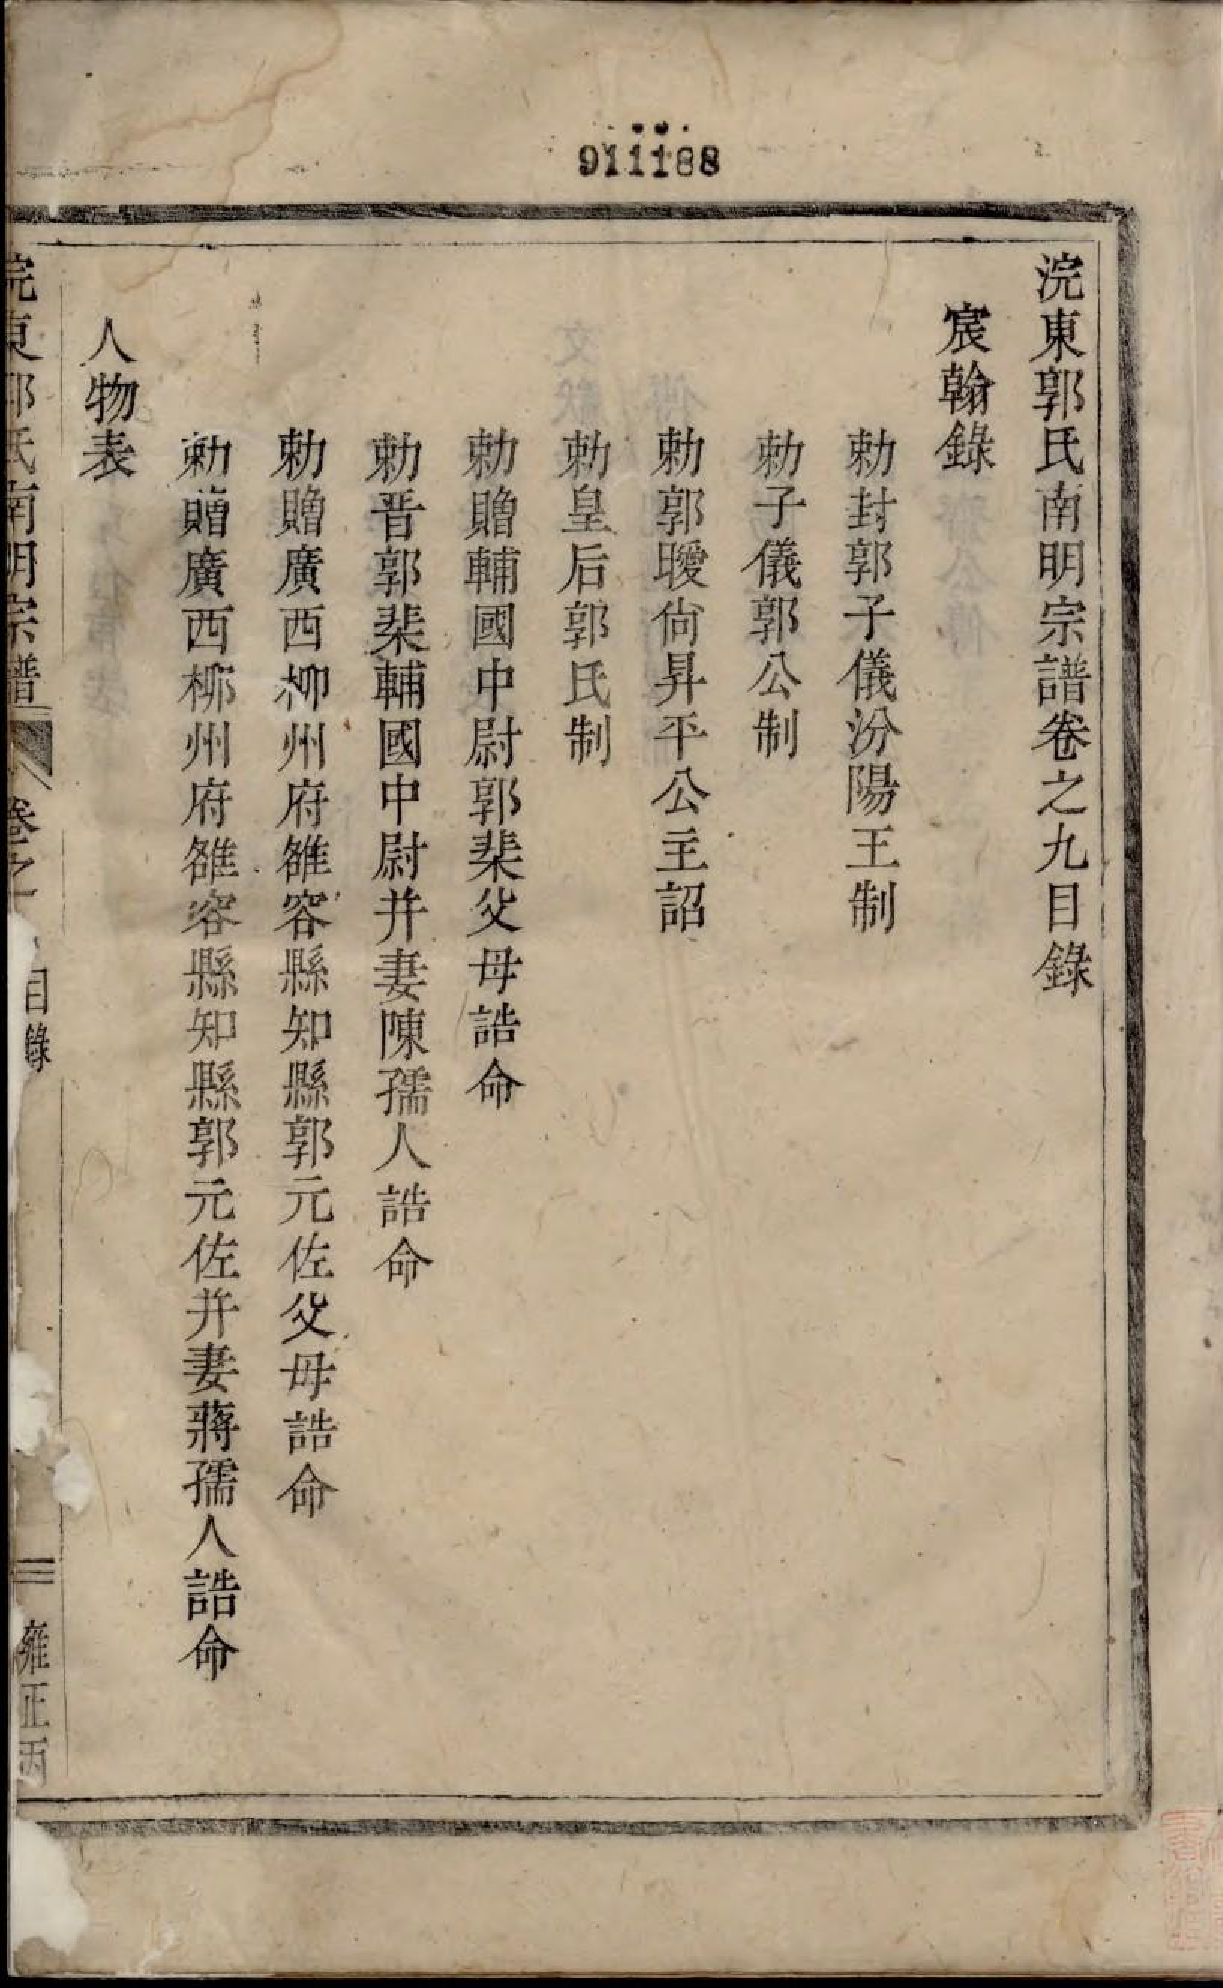 911188
浣東郭氏南明宗譜卷之九目錄
宸翰錄
勅封郭子儀汾陽王制
勅子儀郭公制
勅郭曖尙昇平公主詔
勅皇后郭氏制
勅贈輔國中尉郭棐父母誥命
勅晋郭棐輔國中尉并妻陳孺人誥命
勅贈廣西柳州府雒容縣知縣郭元佐父母誥命
勅贈廣西栁州府雒容縣知縣郭元佐并妻蔣孺人誥命
人物表
浣東郭氏南明宗譜 卷之 目錄 雍正丙